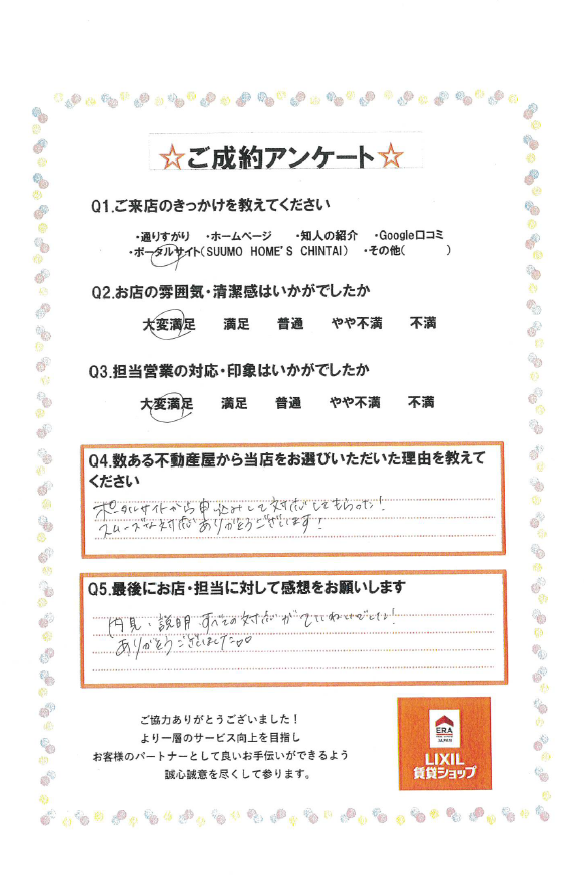 ☆ご成約アンケート☆
Q1.ご来店のきっかけを教えてください
・通りすがり ・ホームページ ・知人の紹介 ・Google口コミ
・ポータルサイト(SUUMO HOME'S CHINTAI) ・その他( )
Q2.お店の雰囲気・清潔感はいかがでしたか
大変満足 満足 普通 やや不満 不満
Q3.担当営業の対応・印象はいかがでしたか
大変満足 満足 普通 やや不満 不満
Q4.数ある不動産屋から当店をお選びいただいた理由を教えて
ください
ポータルサイトから申込みして対応してもらった!
スムーズな対応ありがとうございます!
Q5.最後にお店・担当に対して感想をお願いします
内見・説明すべての対応がていねいでした!
ありがとうございました。
ご協力ありがとうございました!
より一層のサービス向上を目指し
お客様のパートナーとして良いお手伝いができるよう
誠心誠意を尽くして参ります。
ERA
JAPAN
LIXIL
賃貸ショップ